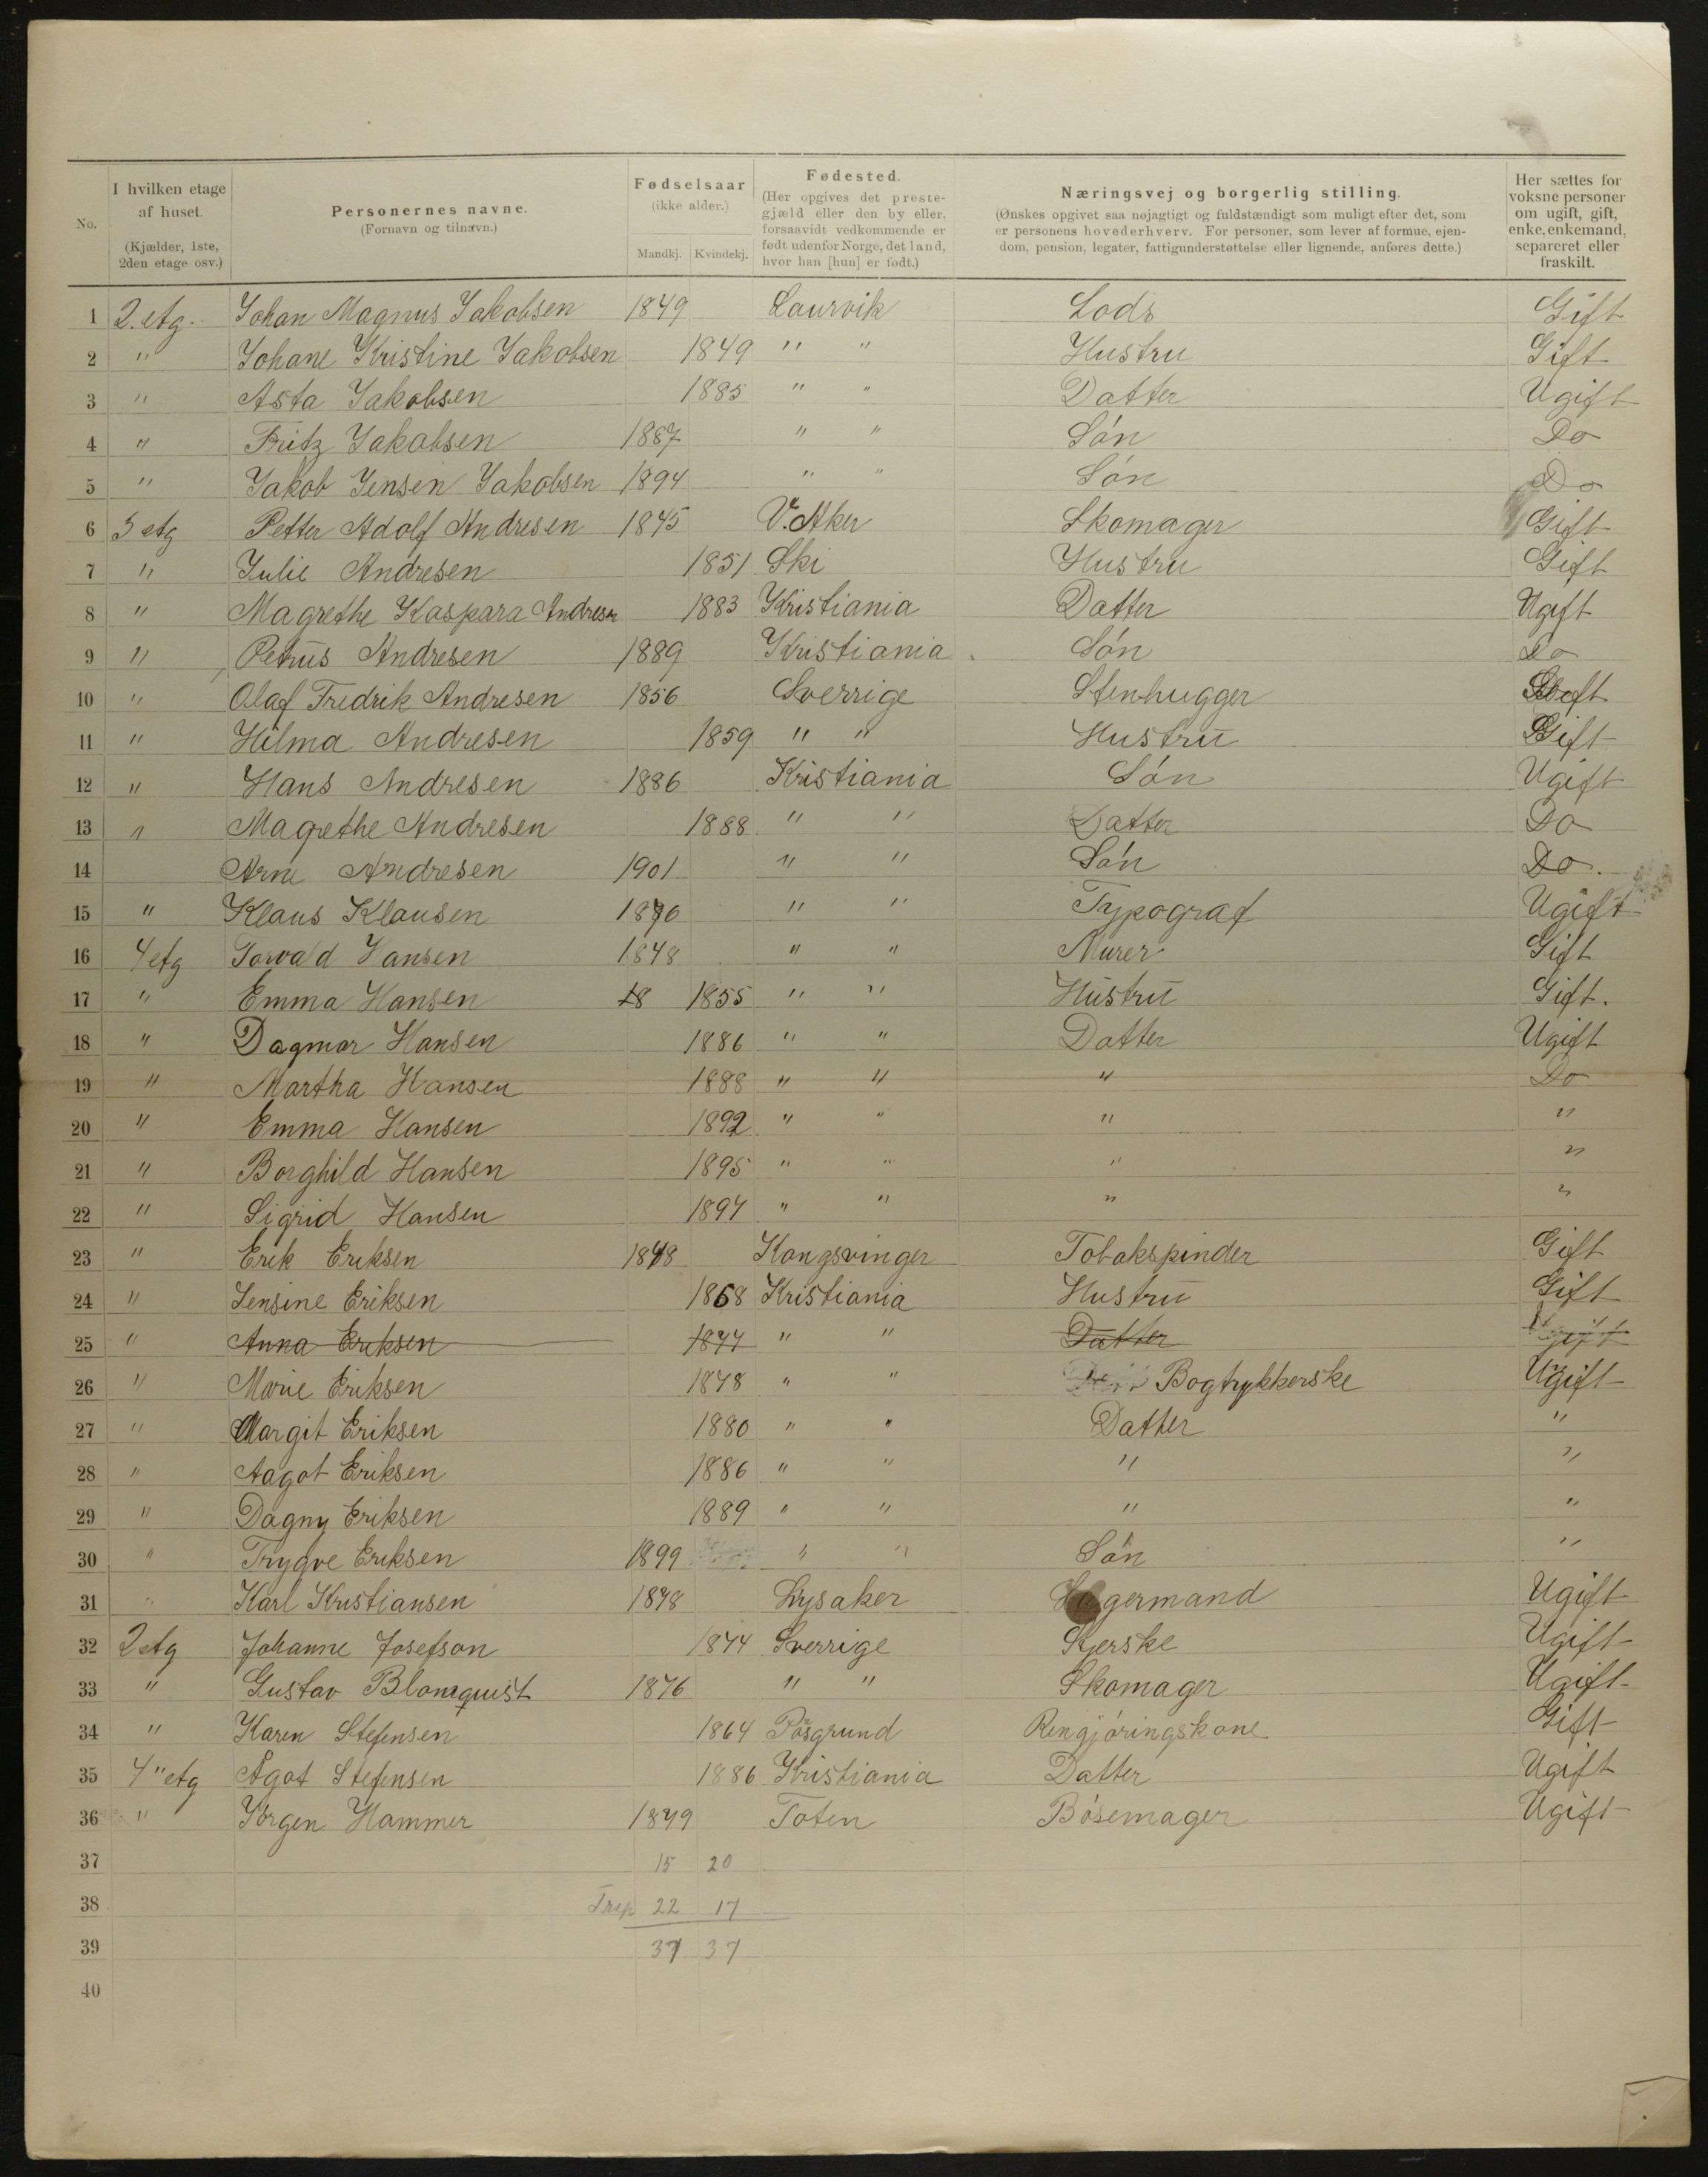 No. | I hvilken etage af huset. (Kjælder, 1ste, 2den etage osv.) | Personernes navne. (Fornavn og tilnavn.) | Fødselsaar (ikke alder.) Mandkj. Kvindekj. | Fødested. (Her opgives det prestegjæld eller den by eller, forsaavidt vedkommende er født udenfor Norge, det land, hvor han [hun] er født.) | Næringsvej og borgerlig stilling. (Ønskes opgivet saa nøjagtigt og fuldstændigt som muligt efter det, som er personens hovederhverv. For personer, som lever af formue, ejendom, pension, legater, fattigunderstøttelse eller lignende, anføres dette.) | Her sættes for voksne personer om ugift, gift, enke, enkemand, separeret eller fraskilt.
1 2. etg. Johan Magnus Jakobsen 1849 Laurvik Lods Gift
2 " Johane Kristine Jakobsen 1849 " " Hustru Gift
3 " Asta Jakobsen 1885 " " Datter Ugift
4 " Fritz Jakobsen 1887 " " Søn Do
5 " Jakob Jensen Jakobsen 1894 " " Søn Do
6 3 etg Petter Adolf Andresen 1845 V. Aker Skomager Gift
7 " Julie Andresen 1851 Ski Hustru Gift
8 " Magrethe Kaspara Andresen 1883 Kristiania Datter Ugift
9 " Petrus Andresen 1889 Kristiania Søn Do
10 " Olaf Fredrik Andresen 1856 Sverrige Stenhugger Gift
11 " Hilma Andresen 1859 " " Hustru Gift
12 " Hans Andresen 1886 Kristiania Søn Ugift
13 " Magrethe Andresen 1888 " " Datter Do
14 Arne Andresen 1901 " " Søn Do.
15 " Klaus Klausen 1876 " " Typograf Ugift
16 4 etg Torvald Hansen 1848 " " Murer Gift
17 " Emma Hansen 18 1855 " " Hustru Gift.
18 " Dagmar Hansen 1886 " " Datter Ugift
19 " Martha Hansen 1888 " " " Do
20 " Emma Hansen 1892 " " " "
21 " Borghild Hansen 1895 " " " "
22 " Sigrid Hansen 1897 " " " "
23 " Erik Eriksen 1848 Kongsvinger Tobakspinder Gift
24 " Jensine Eriksen 1868 Kristiania Hustru Gift
25 " Anna Eriksen 1877 " " Datter Ugift
26 " Marie Eriksen 1878 " " Bogtrykkerske Ugift
27 " Margit Eriksen 1880 " " Datter "
28 " Aagot Eriksen 1886 " " " "
29 " Dagny Eriksen 1889 " " " "
30 " Trygve Eriksen 1899 " " Søn "
31 " Karl Kristiansen 1878 Lysaker Lagermand Ugift
32 2 etg Johanne Josefson 1874 Sverrige Syerske Ugift
33 " Gustav Blomquist 1876 " " Skomager Ugift
34 " Karen Stefensen 1864 Porsgrund Rengjøringskone Gift
35 4" etg Agot Stefensen 1886 Kristiania Datter Ugift
36 " Jørgen Hammer 1879 Toten Bøsemager Ugift
37 15 20
38 22 17
39 37 37
40